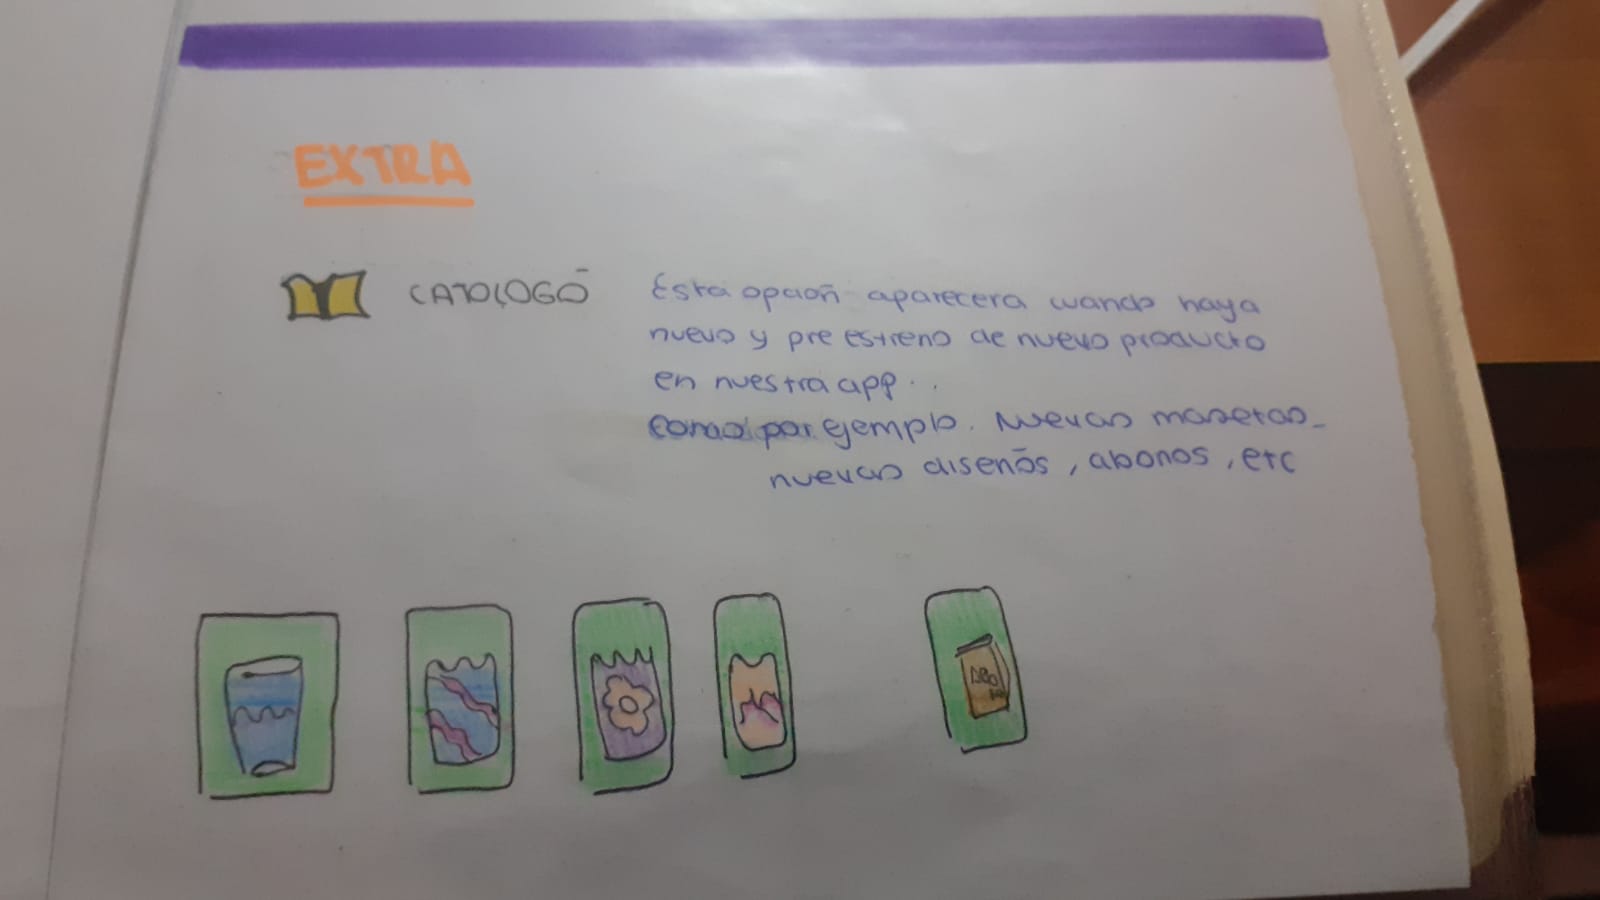 EXTRA
CATOLOGO
Esta opcion aparecera cuando haya
nuevo y pre estreno de nuevo producto
en nuestra app..
Como por ejemplo. Nuevas masetas-
nuevas diseños, abonos, etc
ABO